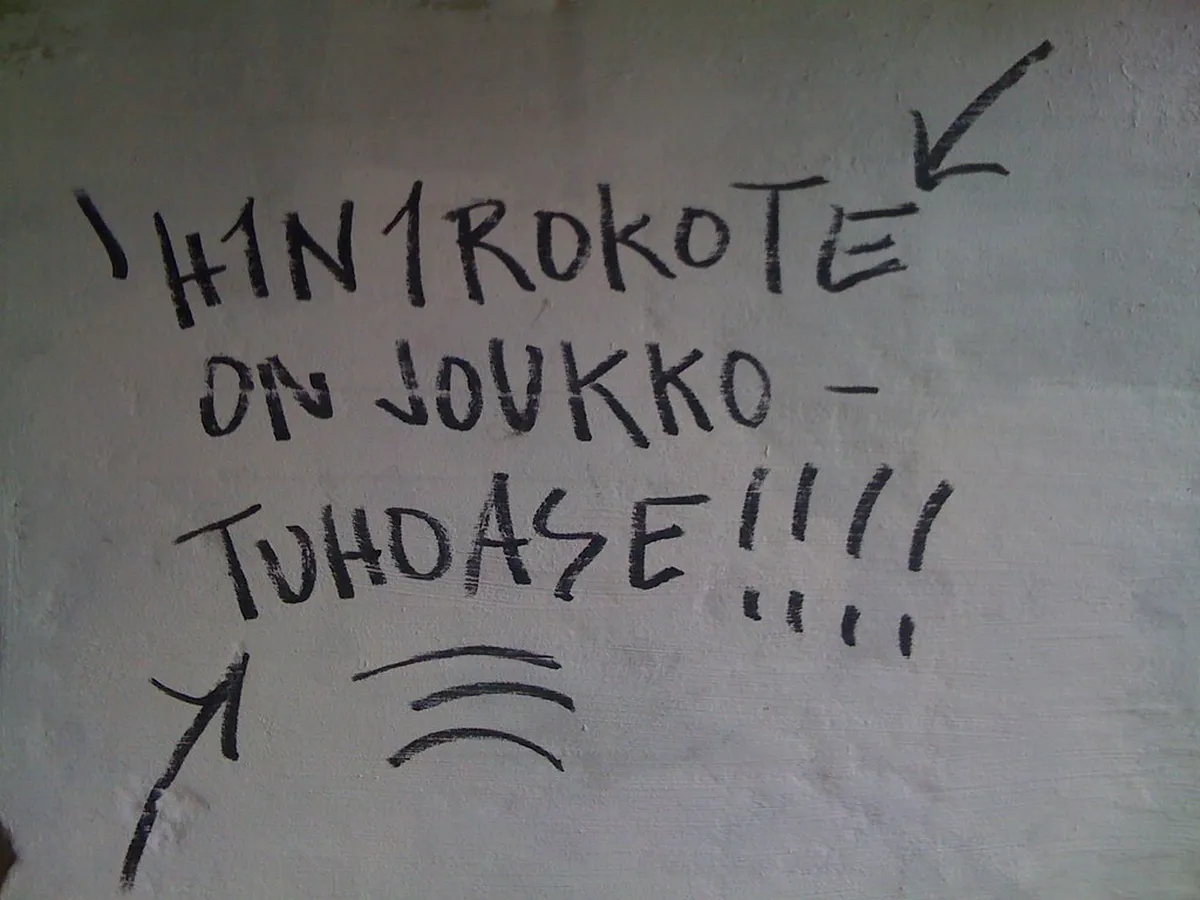 H1N1ROKOTE
ON JOUKKO-
TUHOASE!!!!